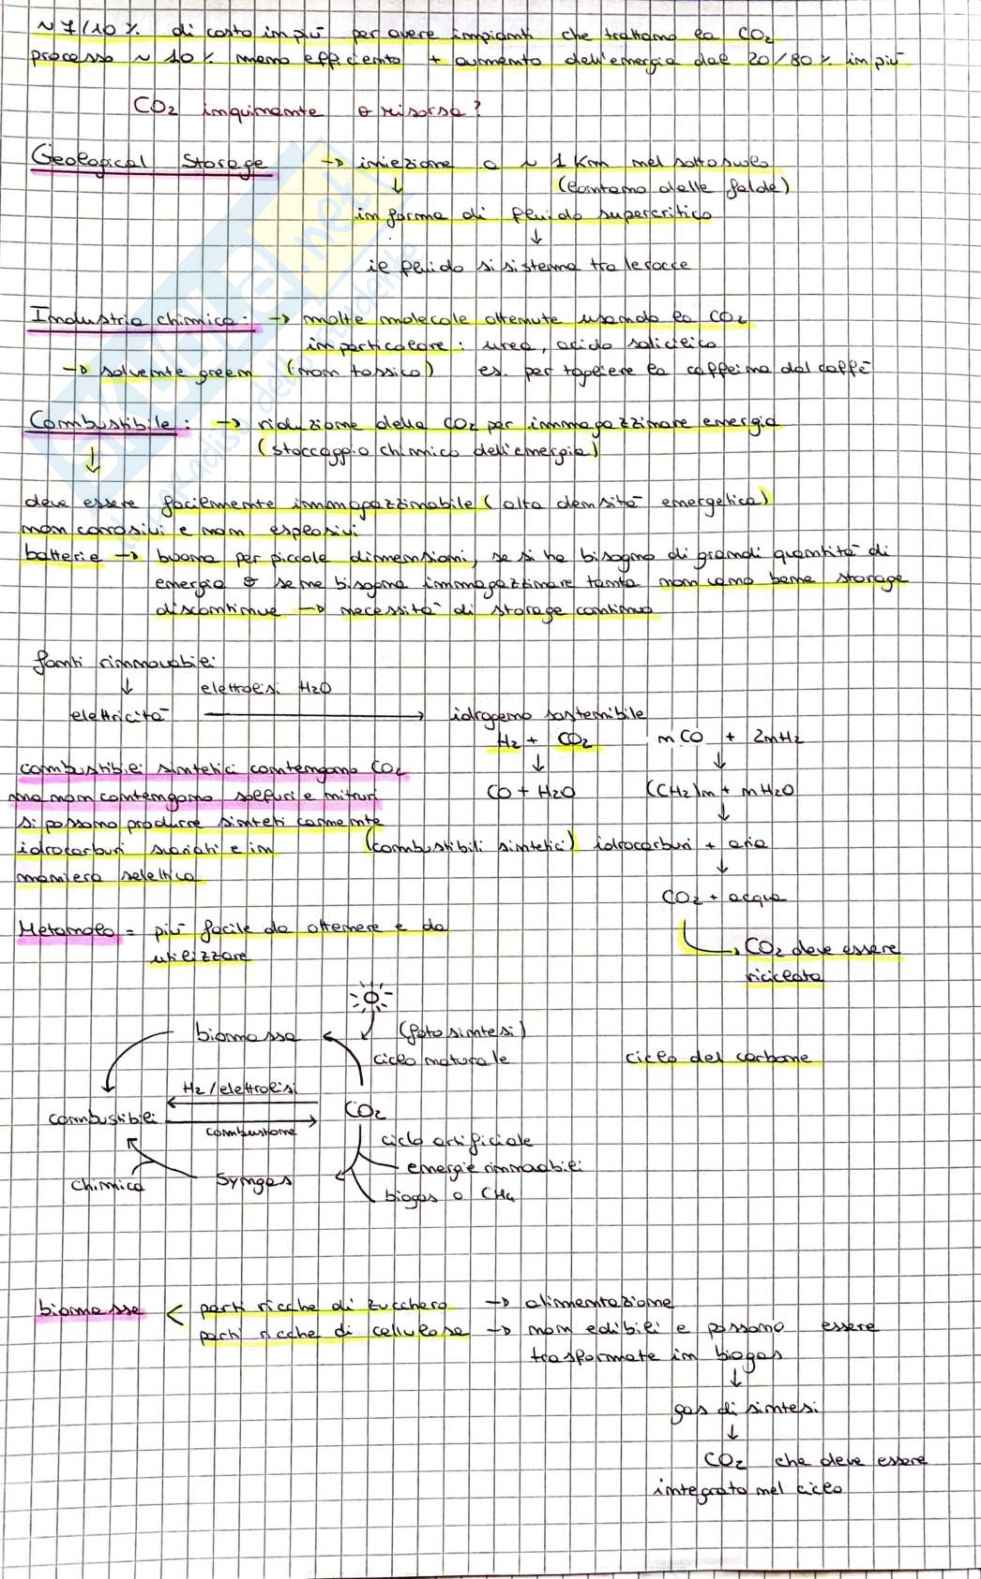 ~ 7/10 % di costo in più per avere impianti che trattano la CO2
processo ~ 10 % meno efficiente + aumento dell'energia del 20/80 % in più
CO2 inquinante o risorsa?
Geological Storage → iniezione a ~ 1 Km nel sottosuolo
↓ (lontano dalle falde)
in forma di fluido supercritico
↓
il fluido si sistema tra le rocce
Industria chimica: → molte molecole ottenute usando la CO2
in particolare: urea, acido salicilico
→ solvente green (non tossico) es. per togliere la caffeina dal caffè
Combustibile: → riduzione della CO2 per immagazzinare energia
↓ (stoccaggio chimico dell'energia)
deve essere facilmente immagazzinabile (alta densità energetica)
non corrosivi e non esplosivi
batterie → buona per piccole dimensioni, se si ha bisogno di grandi quantità di
energia o se ne bisogna immagazzinare tanta non vanno bene storage
discontinue → necessità di storage continuo
fonti rinnovabili
↓ elettrolisi H2O
elettricità → idrogeno sostenibile
H2 + CO2 nCO + 2nH2
combustibili sintetici contengono CO2 ↓ ↓
ma non contengono solfuri e nitruri CO + H2O (CH2)n + nH2O
si possono produrre sinteticamente ↓
idrocarburi svariati e in (combustibili sintetici) idrocarburi + aria
maniera selettiva ↓
CO2 + acqua
Metanolo = più facile da ottenere e da
utilizzare → CO2 deve essere
riciclata
biomassa (fotosintesi)
ciclo naturale ciclo del carbone
H2/elettrolisi
combustibili CO2
combustione
ciclo artificiale
energie rinnovabili
chimica Syngas biogas o CH4
biomasse < parti ricche di zucchero → alimentazione
parti ricche di cellulosa → non edibili e possono essere
trasformate in biogas
↓
gas di sintesi
↓
CO2 che deve essere
integrato nel ciclo